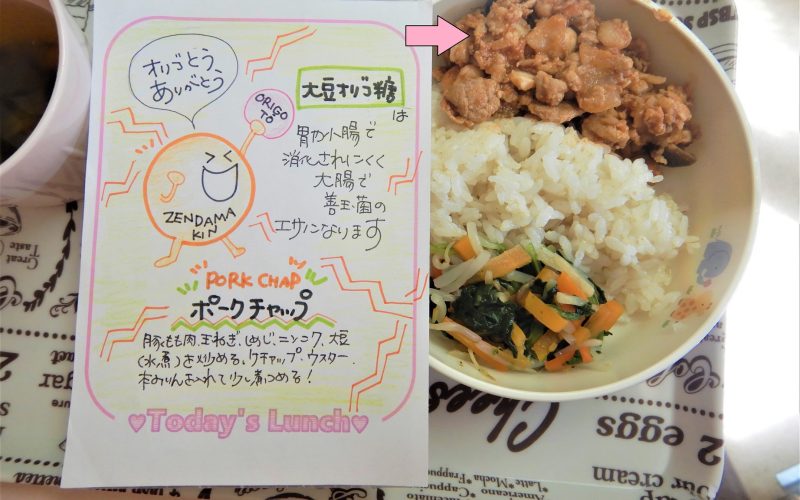 オリゴとう
ありがとう
ORIGO
TO
ZENDAMA
KIN
大豆オリゴ糖
は
胃や小腸で
消化されにくく
大腸で
善玉菌の
エサになります
PORK CHAP
ポークチャップ
豚もも肉、玉ねぎ、しめじ、ニンニク、大豆
(水煮)を炒める。ケチャップ、ウスター、
本みりんを入れて少し煮つめる!
♥Today's Lunch♥
TBSP
Great
Taste
Cheese
2 eggs
Sour cream
Americano
*Latte*Mocha*Frappuc
Cappuccino